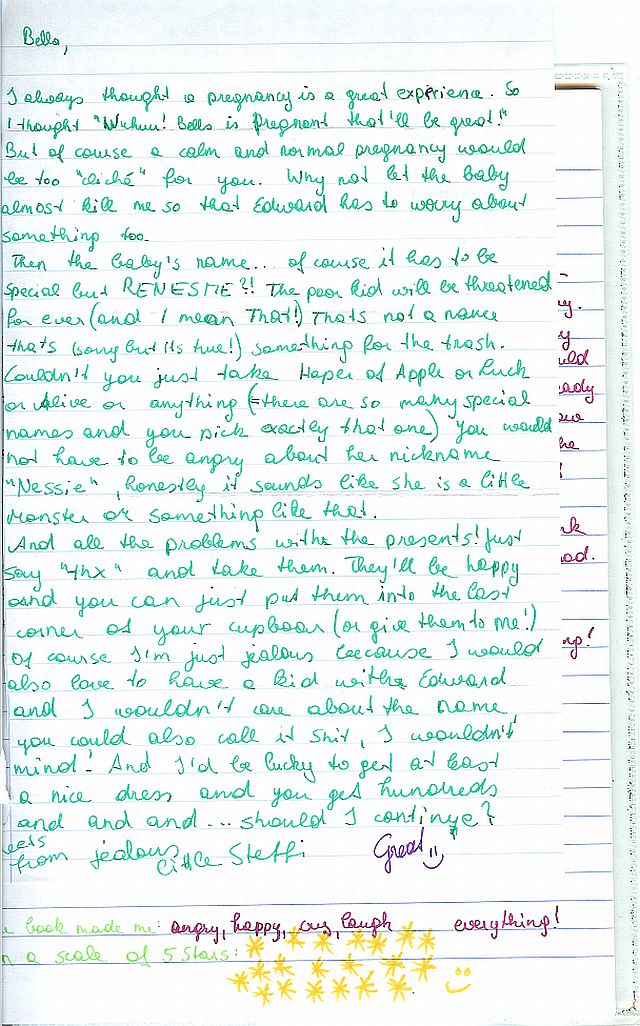 Bella,
I always thought a pregnancy is a great experience. So
I thought "Wuhuu! Bella is Pregnant that'll be great!"
But of course a calm and normal pregnancy would
be too "cliché" for you. Why not let the baby
almost kill me so that Edward has to worry about
something too.
Then the baby's name... of course it has to be
special but RENESME?! The poor kid will be threatened
for ever (and I mean That!) Thats not a name
thats (sorry but its true!) something for the trash.
Couldn't you just take Haper of Apple or Luck
or Alive or anything (there are so many special
names and you pick exactly that one) you would
not have to be angry about her nickname
"Nessie", honestly it sounds like she is a little
monster or something like that.
And all the problems withe the presents! Just
say "thx" and take them. They'll be happy
and you can just put them into the last
corner of your cupboar (or give them to me!)
Of course I'm just jealous because I would
also love to have a kid withe Edward
and I wouldn't care about the name
you could also call it shit, I wouldn't
mind! And I'd be lucky to get at least
a nice dress and you get hundreds
and and and... should I continye?
eets
from jealous
little Steffi Great
book made me: angry, happy, cry, laugh everything!
n a scale of 5 Stars:
y.
y
uld
ady
he
!
k
ad.
ng!